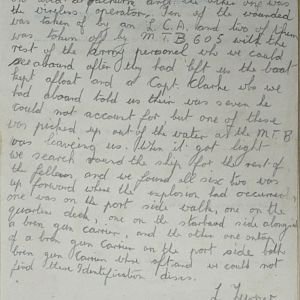 the wireless operator. Ten of the wounded
was taken of by an L.C.A. and two of them
was taken off by M.T.B 605 with the
rest of the army personel who we could
see aboard after they had left us the boat
kept afloat and a Capt. Clarke who we
had aboard told us their was seven he
could not account for but one of these
was picked up out of the water as the M.T.B
was leaving us. When it got light
we search round the ship for the rest of
the fellows and we found all six two was
up forward where the explosion had occurred,
one was on the port side walk, one on the
quarter deck, one on the starboard side alongside
a bren gun carrier, and the other one ontop
of a bren gun carrier on the port side both
bren gun carrier where aft and we could not
find there Identification discs.
L Turner